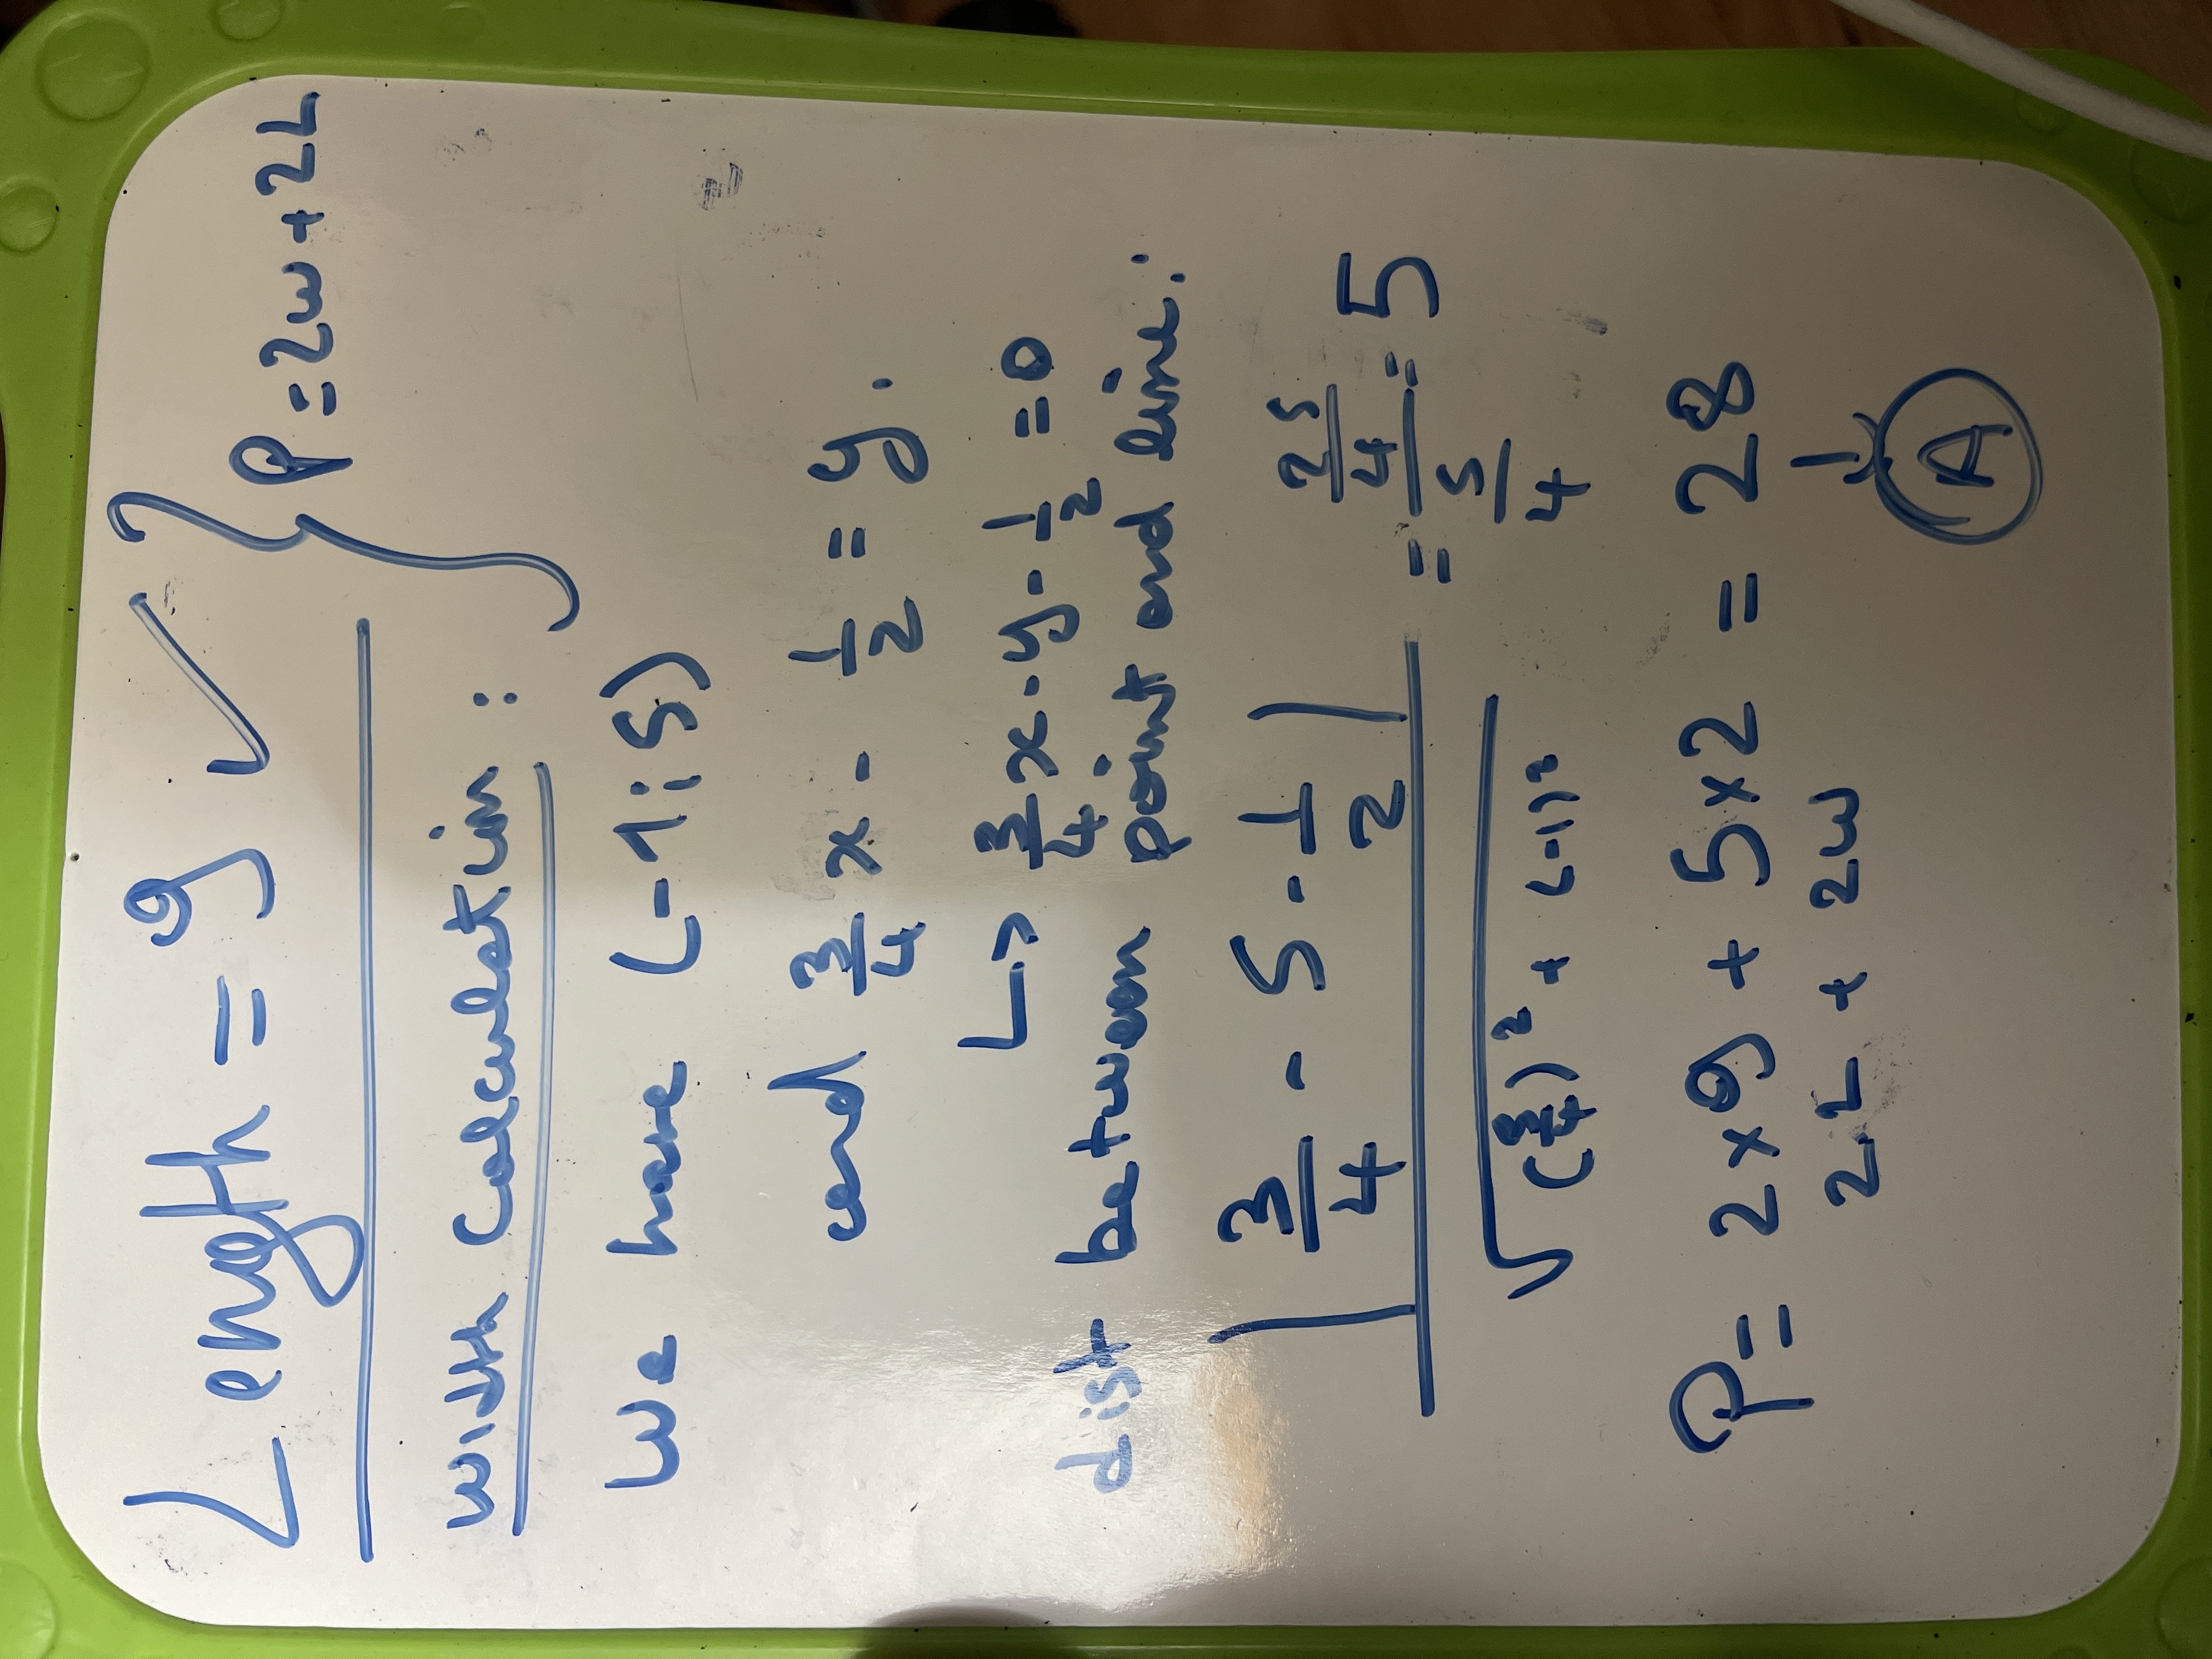 Length = 9 ✓ } P = 2w + 2L
Width Calculation :
We have (-1; 5)
and 3/4 x - 1/2 = y.
↳ 3/4 x - y - 1/2 = 0
dist between point and line:
|3/4 - 5 - 1/2| / √((3/4)² + (-1)²) = (25/4)/(5/4) = 5
P = 2 x 9 + 5 x 2 = 28
2L + 2w ↓
A